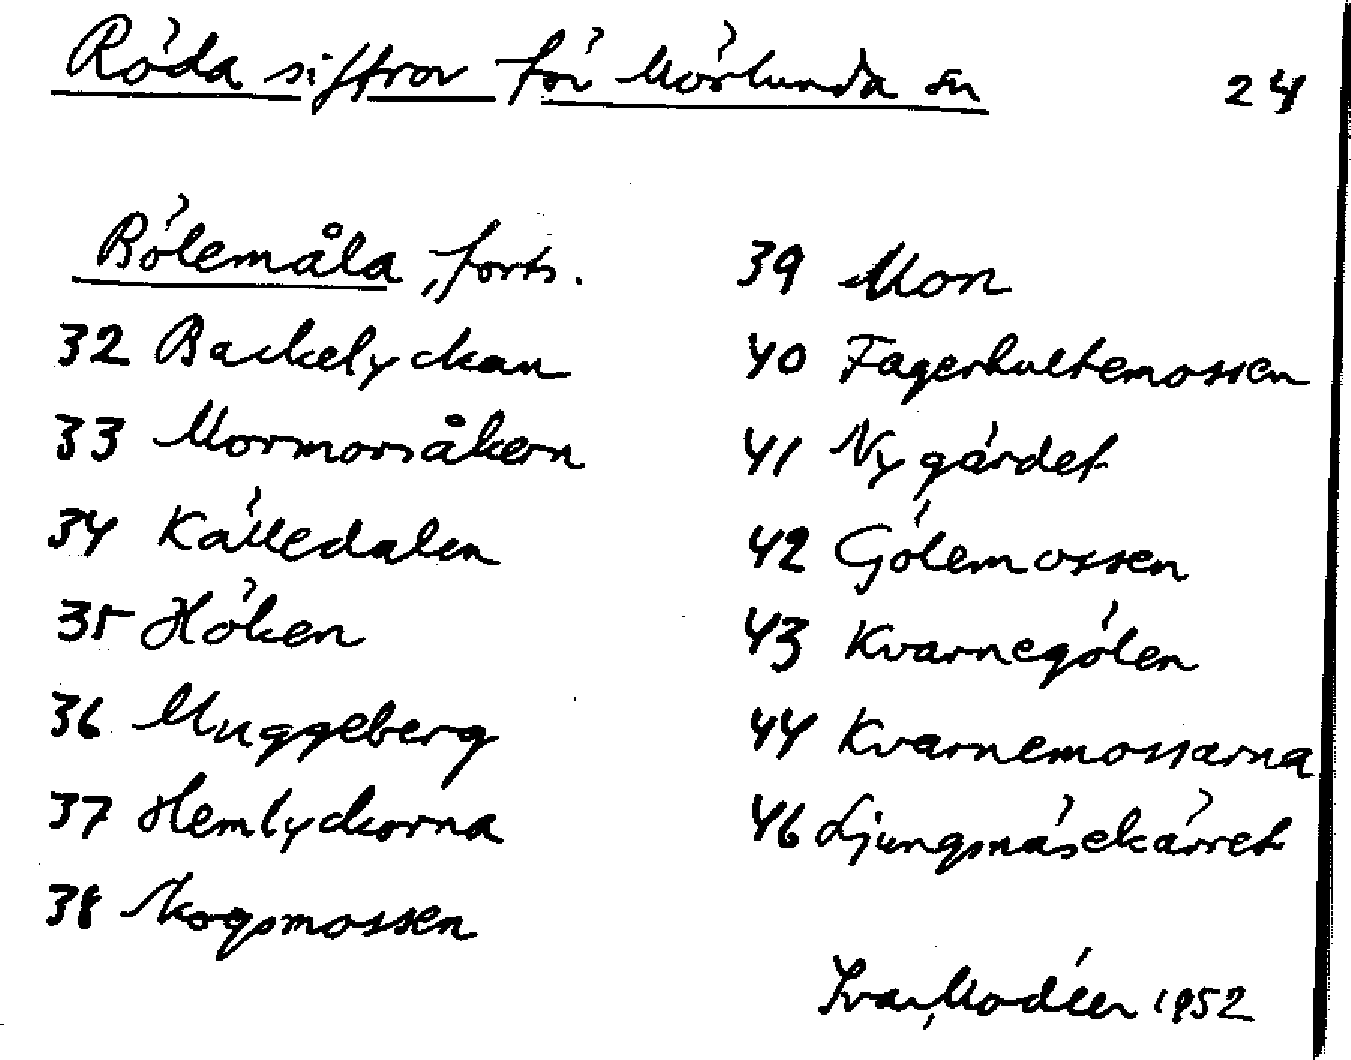 Röda siffror för Mörlunda sn 24
Bölemåla, forts.
32 Backelyckan
33 Mormorsåkern
34 Källedalen
35 Höken
36 Muggeberg
37 Hemlyckorna
38 Skogsmossen
39 Mon
40 Fagerhultemossen
41 Nygärdet
42 Gölemossen
43 Kvarnegölen
44 Kvarnemossarna
46 Ljungsnäsekärret
Ivar Modéer 1952